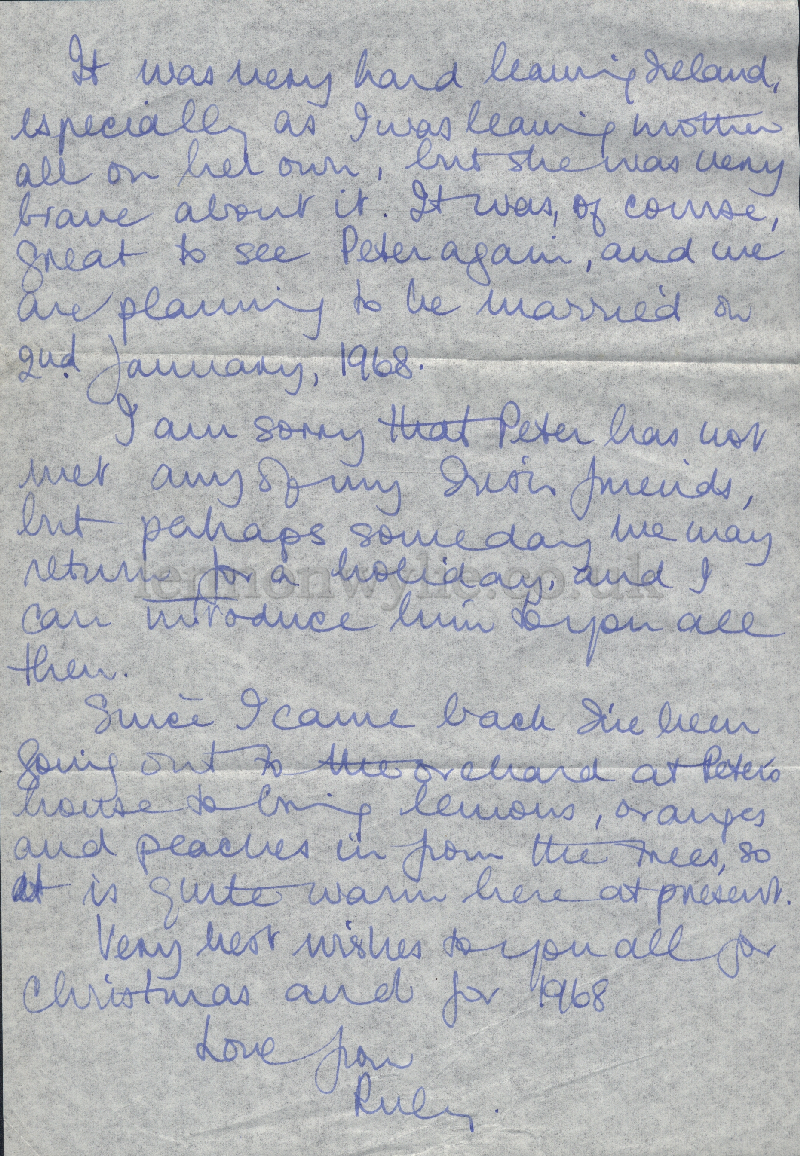 It was very hard leaving Ireland,
especially as I was leaving mother
all on her own, but she was very
brave about it. It was, of course,
great to see Peter again, and we
are planning to be married on
2nd January, 1968.
I am sorry that Peter has not
met any of my Irish friends,
but perhaps someday we may
return for a holiday, and I
can introduce him to you all
then.
Since I came back I've been
going out to the orchard at Peter's
house to bring lemons, oranges
and peaches in from the trees, so
it is quite warm here at present.
Very best wishes to you all for
Christmas and for 1968
Love from
Ruby.
lennonwylie.co.uk